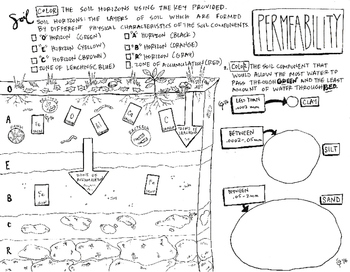 Soil
COLOR THE SOIL HORIZONS USING THE KEY PROVIDED.
SOIL HORIZONS: THE LAYERS OF SOIL WHICH ARE FORMED
BY DIFFERENT PHYSICAL CHARACTERISTICS OF THE SOIL COMPONENTS
"O" HORIZON (GREEN)
"E" HORIZON (YELLOW)
"C" HORIZON (BROWN)
ZONE OF LEACHING (BLUE)
"A" HORIZON (BLACK)
"B" HORIZON (ORANGE)
"R" HORIZON (GRAY)
ZONE OF ACCUMULATION (RED)
PERMEABILITY
COLOR THE SOIL COMPONENT THAT
WOULD ALLOW THE MOST WATER TO
PASS THROUGH GREEN AND THE LEAST
AMOUNT OF WATER THROUGH RED.
LESS THAN
.0002 mm
CLAY
BETWEEN
.0002-.05mm
SILT
BETWEEN
.05-2mm
SAND
O
A
E
B
C
R
ZONE OF LEACHING
ZONE OF ACCUMULATION